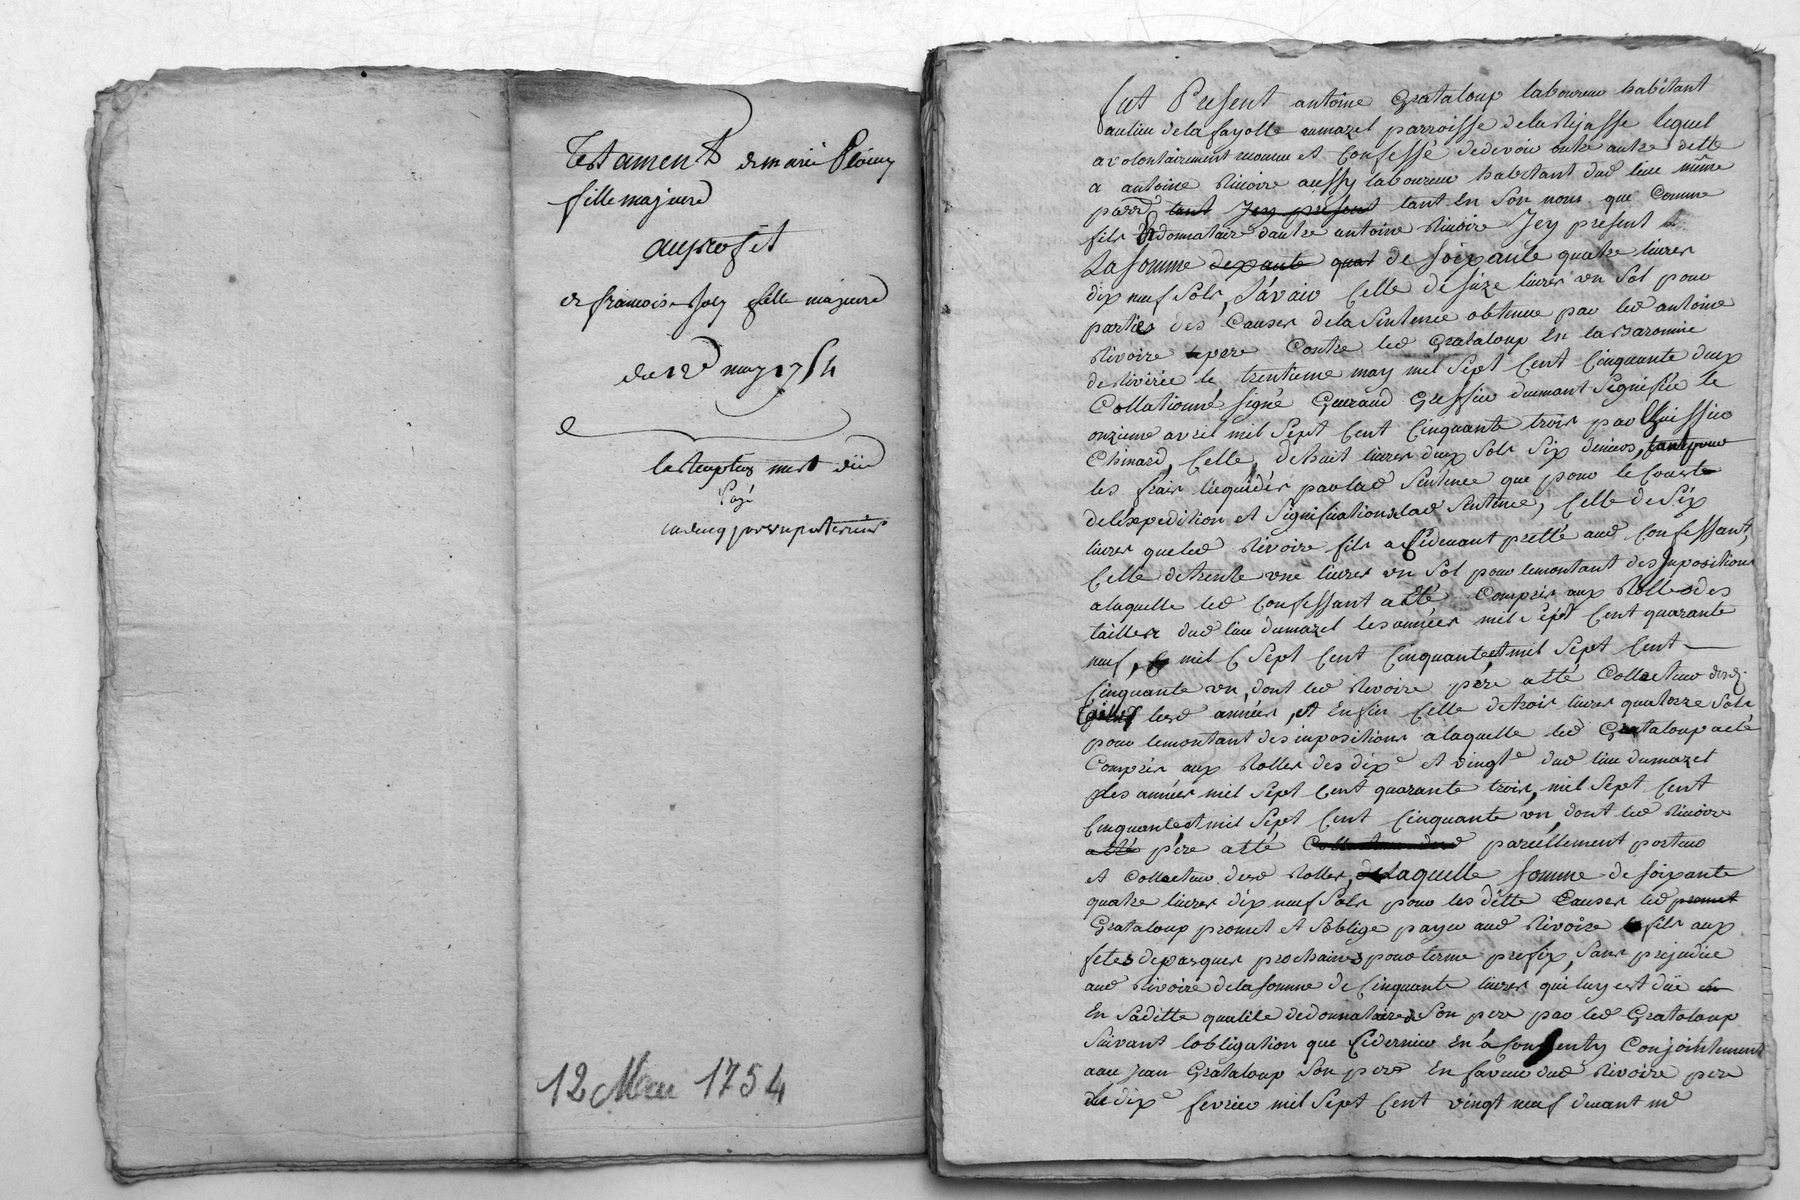 Testament de marie
fille majeure
au profit
de francoise Joly fille majeure
du 12e may 1754
Payé
12 Mai 1754
fut Present antoine Grataloup laboureur habitant
au lieu de la fayolle parroisse de la Rijasse lequel
a volontairement reconnu et Confessé de devoir outre autre dette
a antoine Rivoire aussy laboureur habitant dud lieu même
parr~ tant Jcy présent tant En Son nom que Comme
fils & donnataire dautre antoine Rivoire Jcy present
La somme de soixante quatre livres
dix neuf Sols, Sçavoir Celle de Seize livres un Sol pour
parties des Causes de la Sentence obtenue par led antoine
Rivoire pere Contre led Grataloup En la Baronnie
de Rivirée le trentieme may mil Sept Cent Cinquante deux
Collationné signé Gueraud Greffier duemant Signifiée le
onzieme avril mil Sept Cent Cinquante trois par Lhuissier
Chinard, Celle de huit livres deux Sols Six deniers, tant pour
les frais liequidés par lad Sentence que pour le Couste
de lexpedition et Signification de lad Sentence, Celle de Six
livres que led Rivoire fils a Cidevant pretté aud Confessant,
Celle de trente une livres un Sol pour le montant des Jmpositions
a laquelle led Confessant a etté Compris aux Rolles des
tailles dud lieu dumazel les années mil Sept Cent quarante
neuf, mil Sept Cent Cinquante et mil Sept Cent
Cinquante un, dont led Rivoire père a etté Collecteur desd.
lesd années, et Enfin Celle de trois livres quatorze Sols
pour le montant des impositions a laquelle led Grataloup a eté
Compris aux Rolles des dixe et vingte dud lieu dumazel
les années mil Sept Cent quarante trois, mil Sept Cent
Cinquante et mil Sept Cent Cinquante un, dont led Rivoire
père a eté pareillement porteur
et Collecteur desd Rolles, de Laquelle Somme de soixante
quatre livres dix neuf Sols pour les ditte Causes led promet
Grataloup promet et Soblige payer aud Rivoire fils aux
fetes de pasques prochaines pour terme prefix, Sans prejudice
aud Rivoire de la somme de Cinquante livres qui luy est düe
En Saditte qualité de donnataire de Son pere par led Grataloup
Suivant lobligation que Cidernier En à Consenty Conjointement
avec jean Grataloup Son pere En faveur dud Rivoire pere
dixe fevrier mil Sept Cent vingt neuf devant me